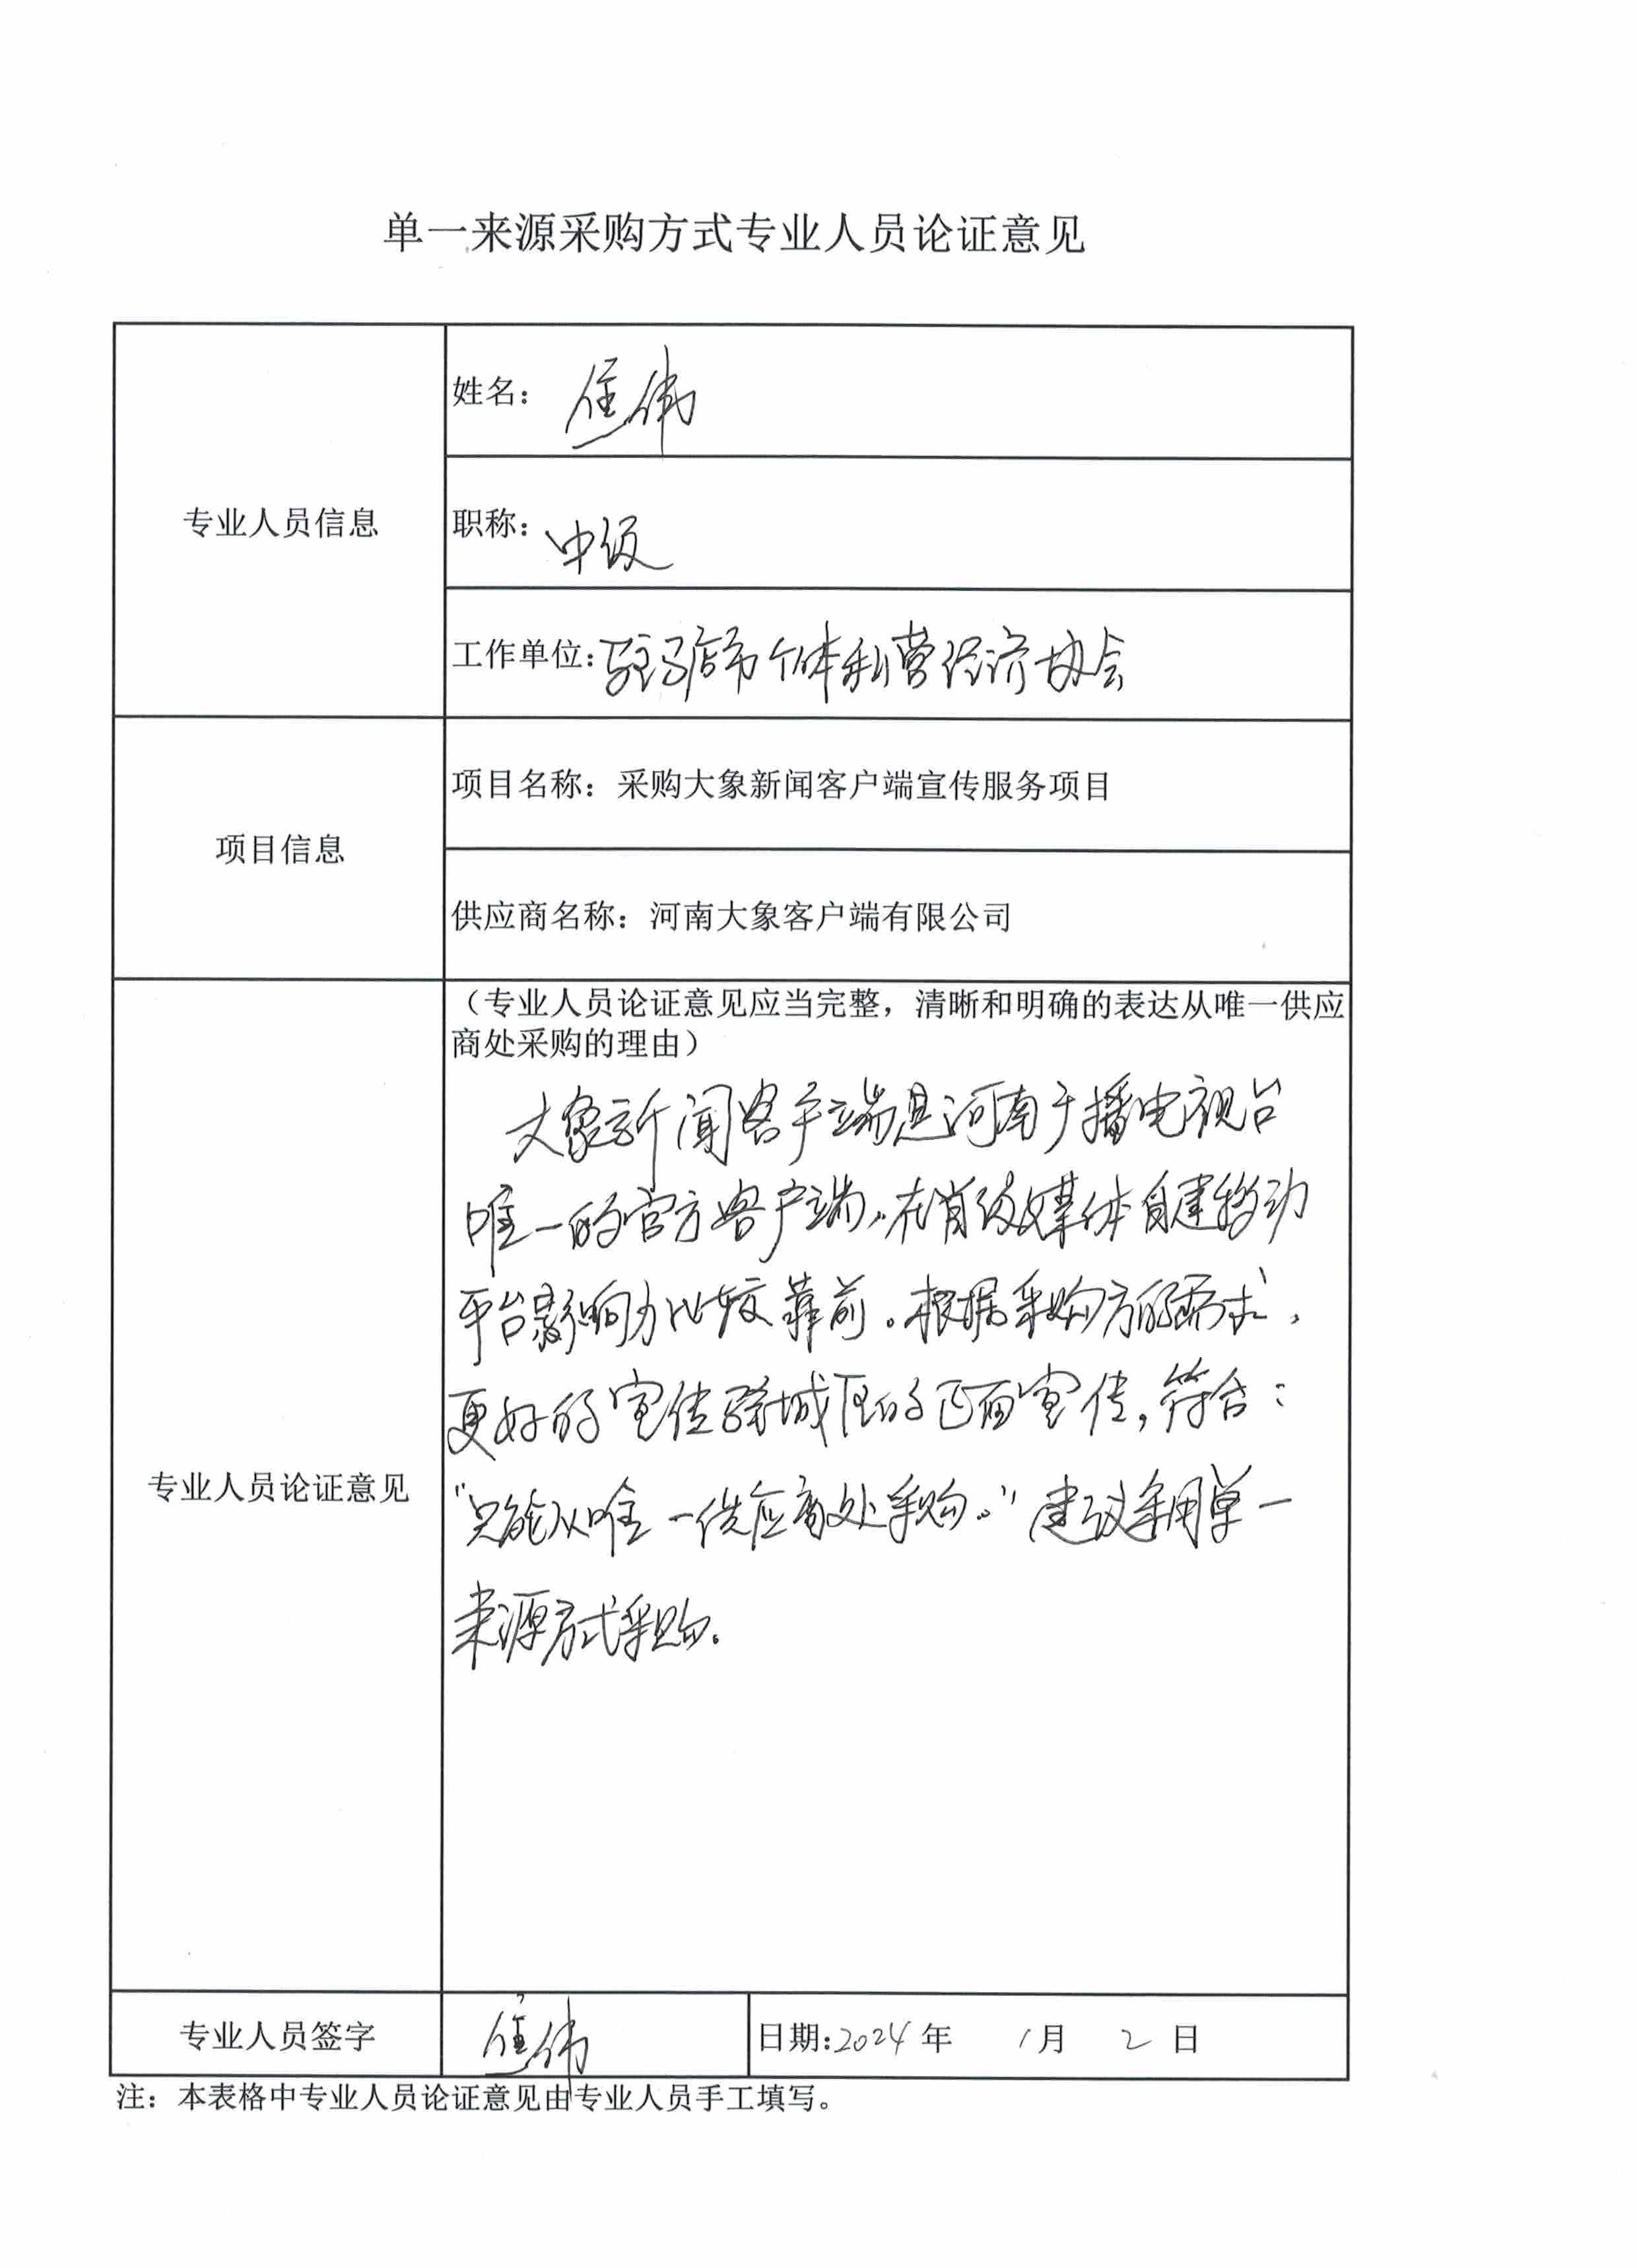 单一来源采购方式专业人员论证意见
专业人员信息
姓名：
伟
职称：中级
工作单位：驻马店市个体私营经济协会
项目信息
项目名称：采购大象新闻客户端宣传服务项目
供应商名称：河南大象客户端有限公司
专业人员论证意见
（专业人员论证意见应当完整，清晰和明确的表达从唯一供应
商处采购的理由）
大象新闻客户端是河南广播电视台
唯一的官方客户端。在省级媒体自建移动
平台影响力比较靠前。根据采购方的需求，
更好的宣传驿城区的正面宣传，符合：
“只能从唯一供应商处采购。”建议采用单一
来源方式采购。
专业人员签字
伟
日期：2024年 1月 2日
注：本表格中专业人员论证意见由专业人员手工填写。